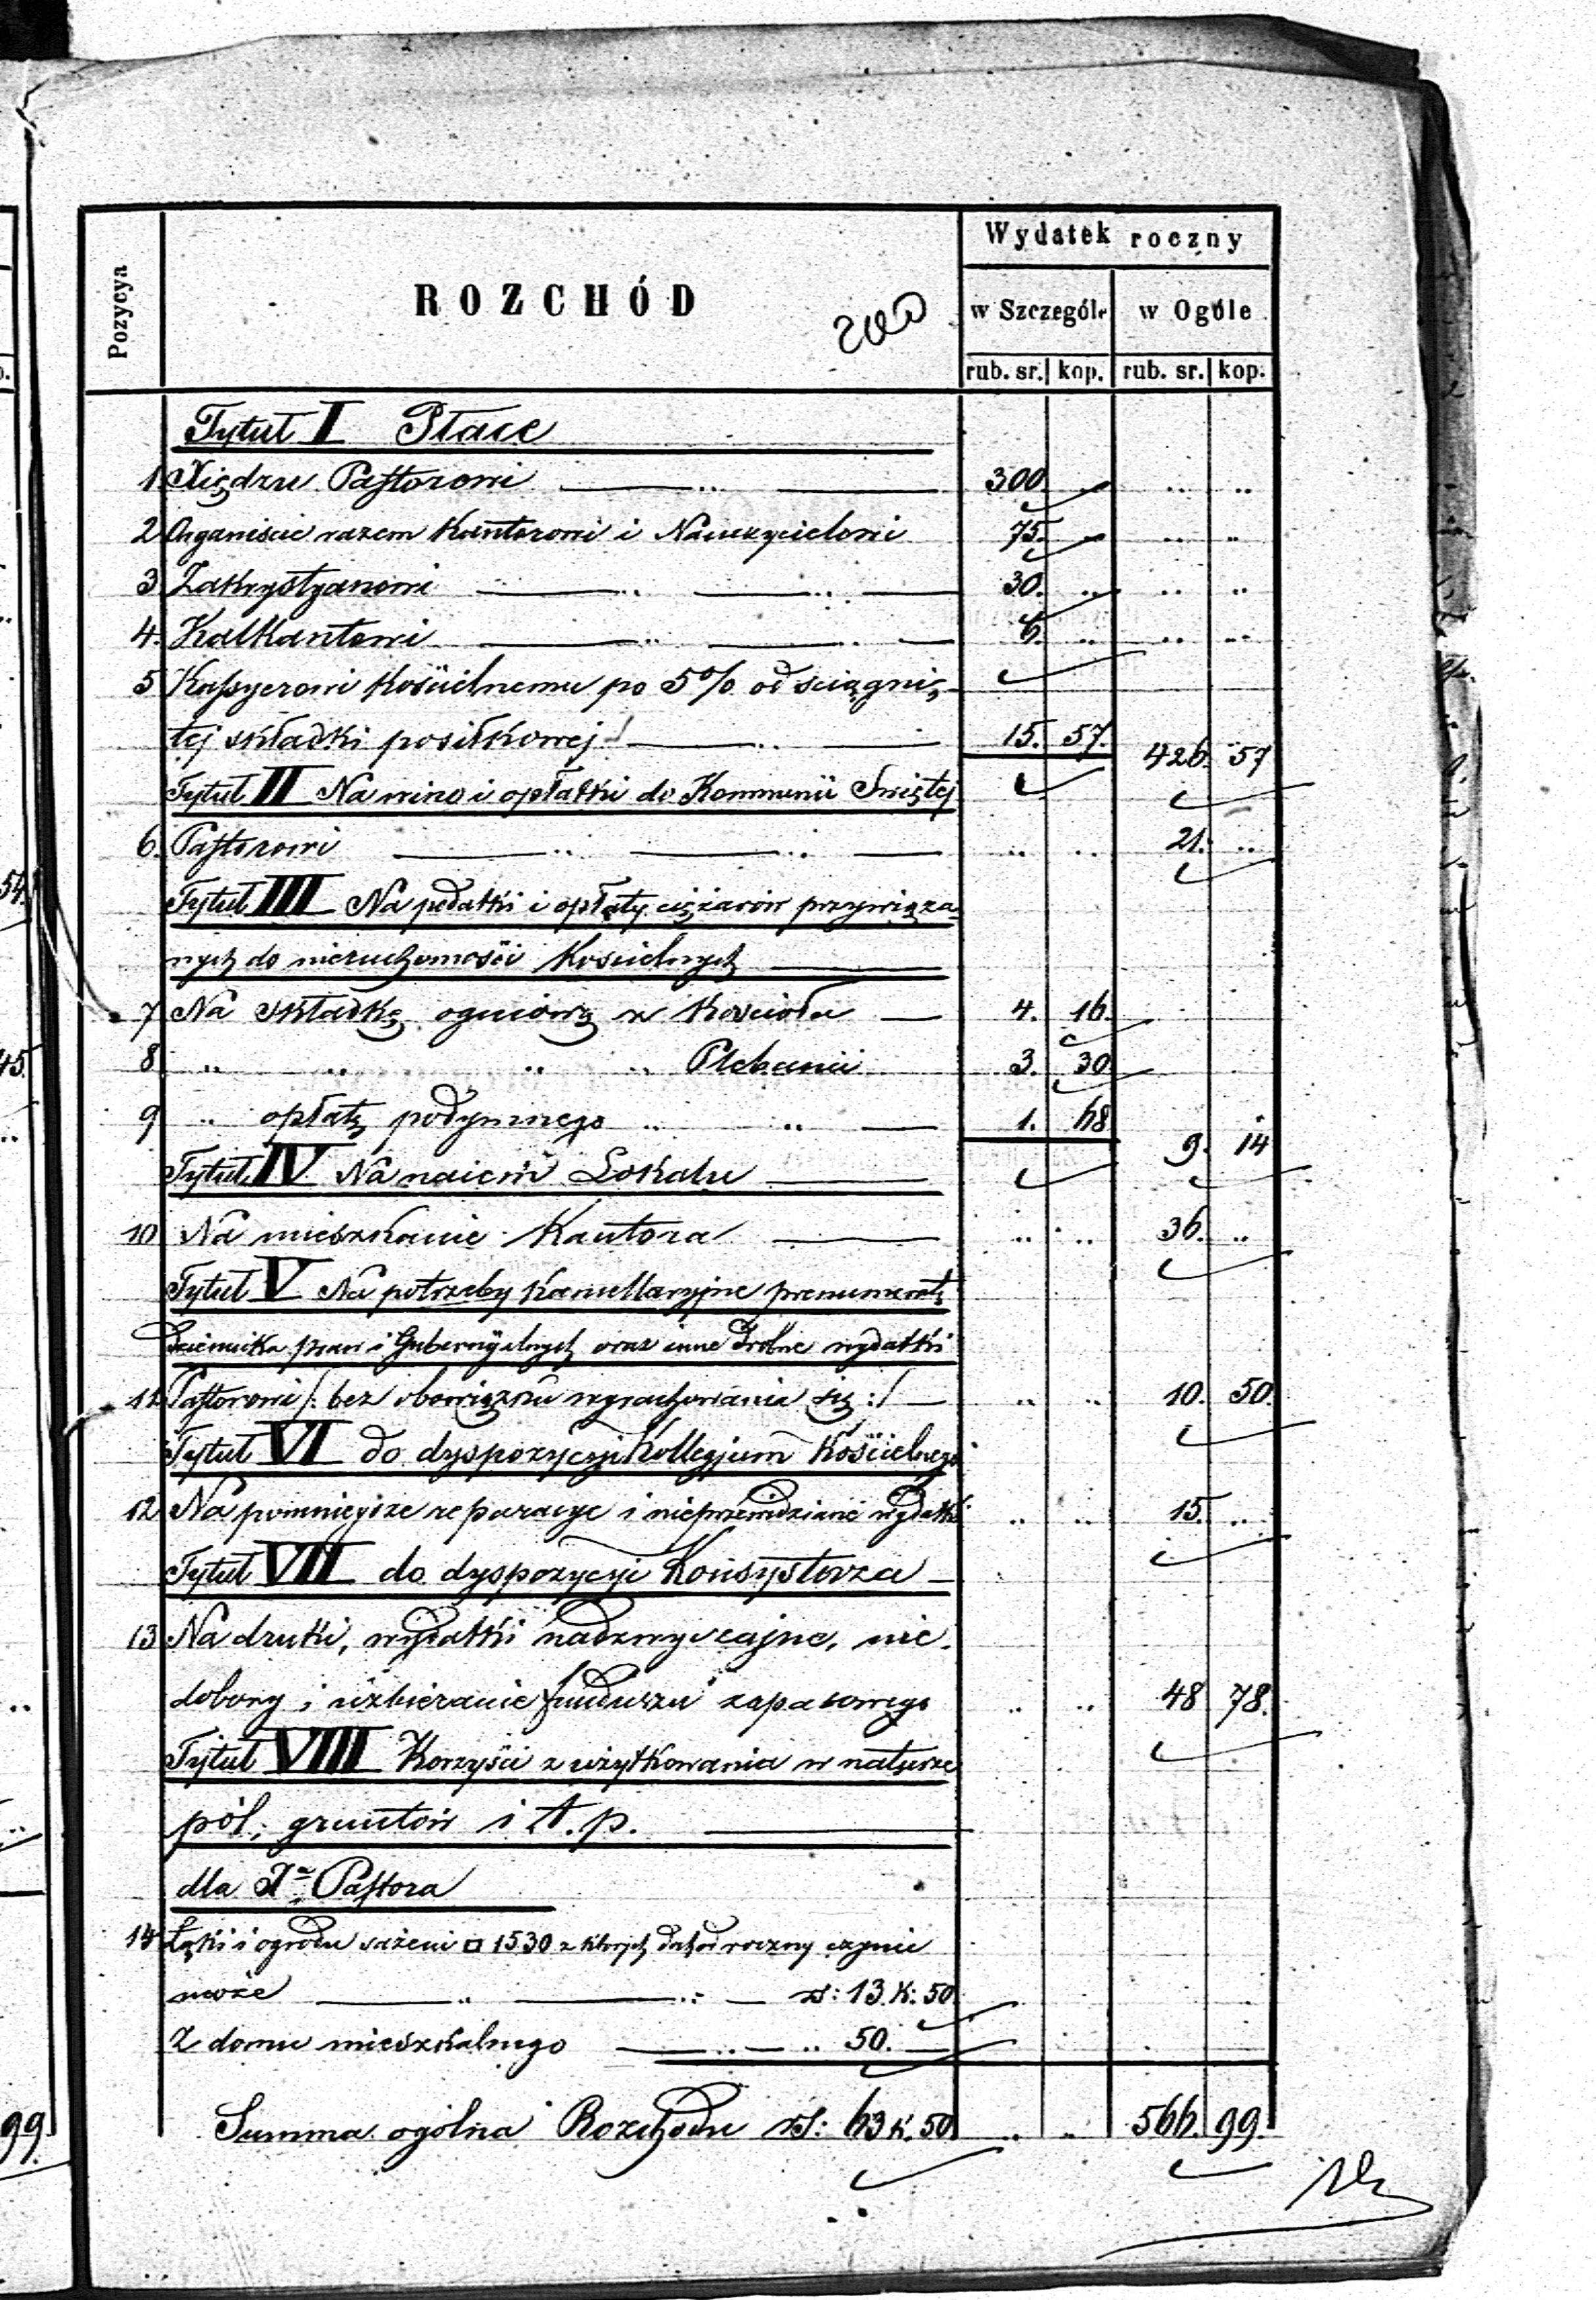 Wydatek roczny
Pozycya
ROZCHÓD
w Szczególe
w Ogóle
rub. sr. kop. rub. sr. kop.
Tytuł I Płace
1 Xiędzu Pastorowi 300 .. .. ..
2 Organiście razem Kantorowi i Nauczycielowi 75. .. .. ..
3 Zakrystyanowi 30. .. .. ..
4. Kalkantowi 6. .. .. ..
5 Kassyerowi Kościelnemu po 5% od sciągnię-
tej składki posiłkowej 15. 57. 426. 57
Tytuł II Na wino i opłatki do Kommunii Swiętej
6. Pastorowi .. .. 21. ..
Tytuł III Na podatki i opłaty ciężarów przywiąza-
nych do nieruchomości Kościelnych
7 Na składkę ogniową z Kościoła 4. 16.
8 .. .. .. .. Plebanii 3. 30.
9 .. opłatę podymnego .. .. 1. 68 9. 14
Tytuł IV Na naiem Lokalu
10 Na mieszkanie Kantora .. .. 36. ..
Tytuł V Na potrzeby Kancellaryjne prenumeratę
Dziennika praw i Gubernijalnych oraz inne drobne wydatki
11 Pastorowi /: bez obowiązku wyrachowania się :/ .. .. 10. 50.
Tytuł VI do dyspozycyi Kollegjum Kościelnego
12 Na pomniejsze reparacye i nieprzewidziane wydatki .. .. 15. ..
Tytuł VII do dyspozycyi Konsystorza
13 Na druki, wydatki nadzwyczajne, nie-
dobory i uzbieranie funduszu zapasowego .. .. 48 78.
Tytuł VIII Korzyści z użytkowania w naturze
pól, gruntów i t. p.
dla Xa Pastora
14 Łąki i ogrodu sażeni □ 1530 z których dochód roczny czynić
może rs: 13. k: 50.
Z domu mieszkalnego .. 50.
Summa ogólna Rozchodu rs: 63 k. 50 .. .. 566. 99.